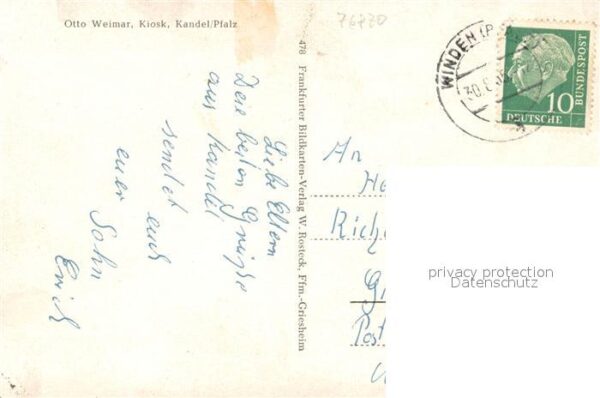 Otto Weimar, Kiosk, Kandel/Pfalz
76770
478 Frankfurter Bildkarten-Verlag W. Rosteck, Ffm.-Griesheim
Liebe Eltern
Die besten Grüße
aus Kandel
sendet euch
euer Sohn
Erich
WINDEN (P
30.
10
DEUTSCHE
BUNDESPOST
An
He
Riche
G
Post
privacy protection
Datenschutz